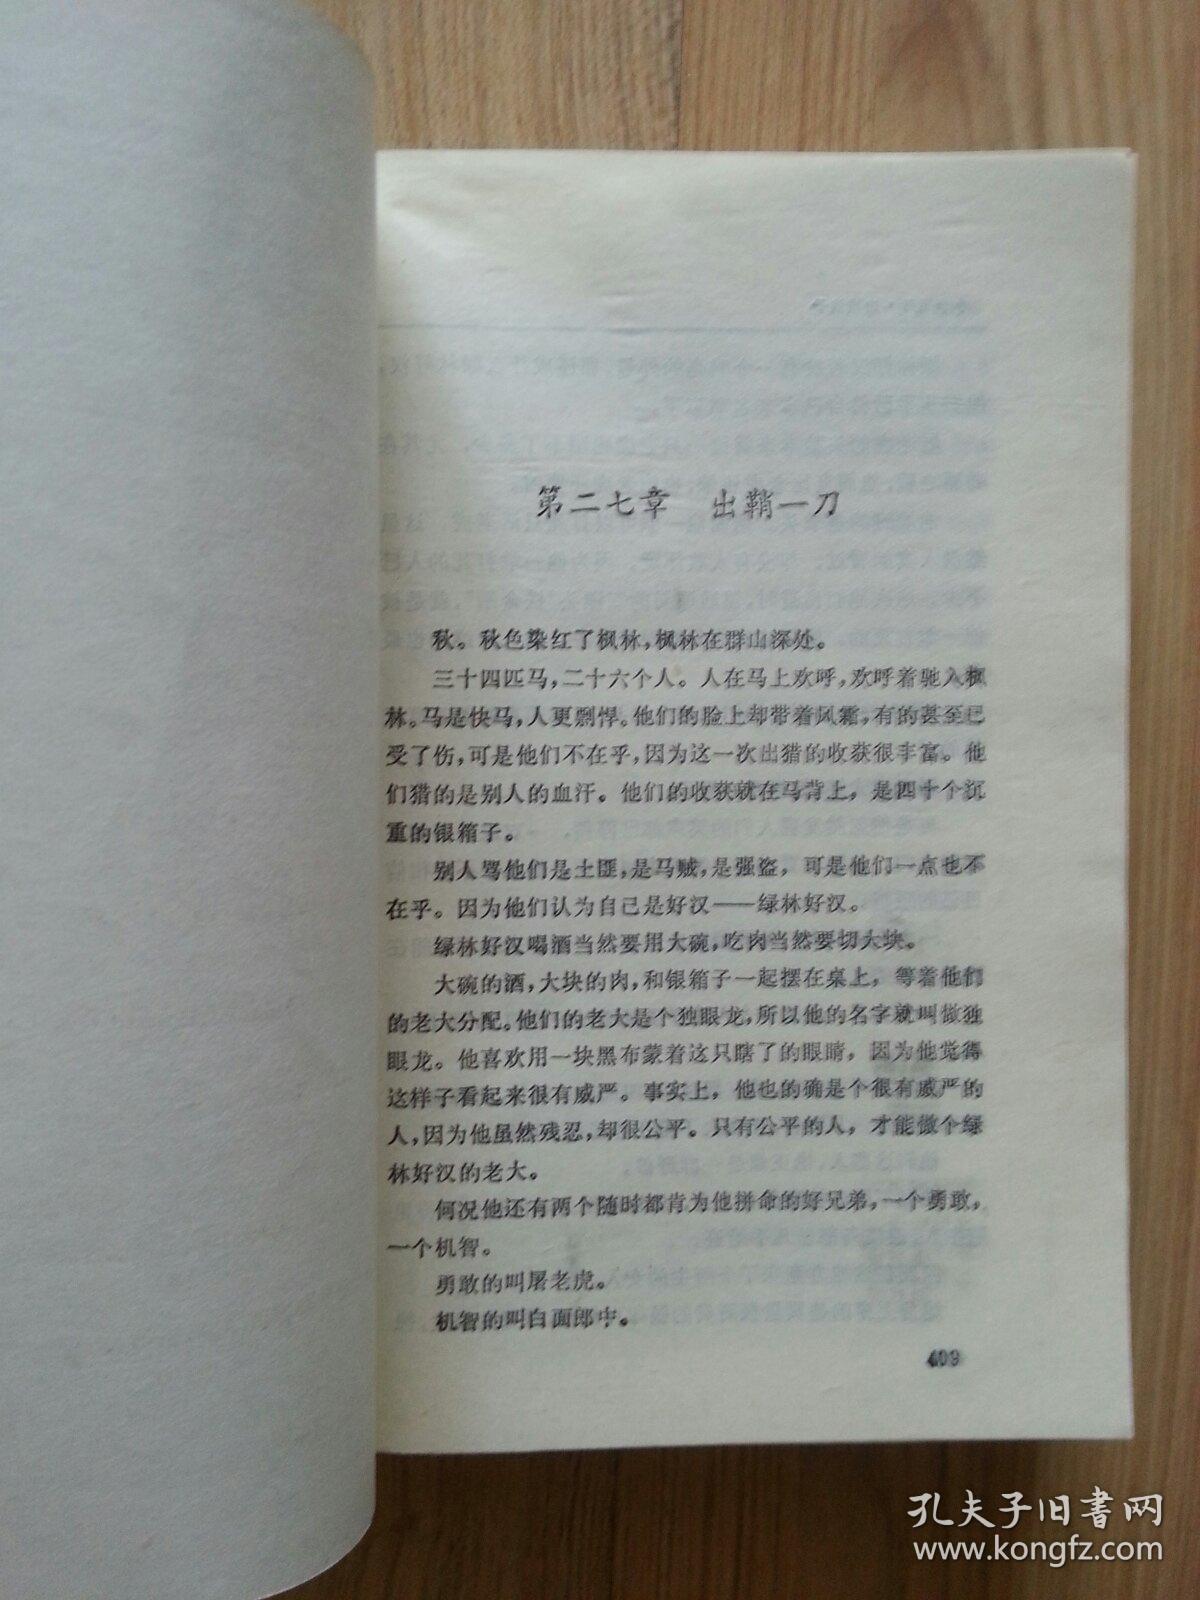 第二七章 出鞘一刀
秋。秋色染红了枫林，枫林在群山深处。
三十四匹马，二十六个人。人在马上欢呼，欢呼着驰入枫
林。马是快马，人更剽悍。他们的脸上却带着风霜，有的甚至已
受了伤，可是他们不在乎，因为这一次出猎的收获很丰富。他
们猎的是别人的血汗。他们的收获就在马背上，是四十个沉
重的银箱子。
别人骂他们是土匪，是马贼，是强盗，可是他们一点也不
在乎。因为他们认为自己是好汉——绿林好汉。
绿林好汉喝酒当然要用大碗，吃肉当然要切大块。
大碗的酒，大块的肉，和银箱子一起摆在桌上，等着他们
的老大分配。他们的老大是个独眼龙，所以他的名字就叫做独
眼龙。他喜欢用一块黑布蒙着这只瞎了的眼睛，因为他觉得
这样子看起来很有威严。事实上，他也的确是个很有威严的
人，因为他虽然残忍，却很公平。只有公平的人，才能做个绿
林好汉的老大。
何况他还有两个随时都肯为他拼命的好兄弟，一个勇敢，
一个机智。
勇敢的叫屠老虎。
机智的叫白面郎中。
409
孔夫子旧书网
www.kongfz.com